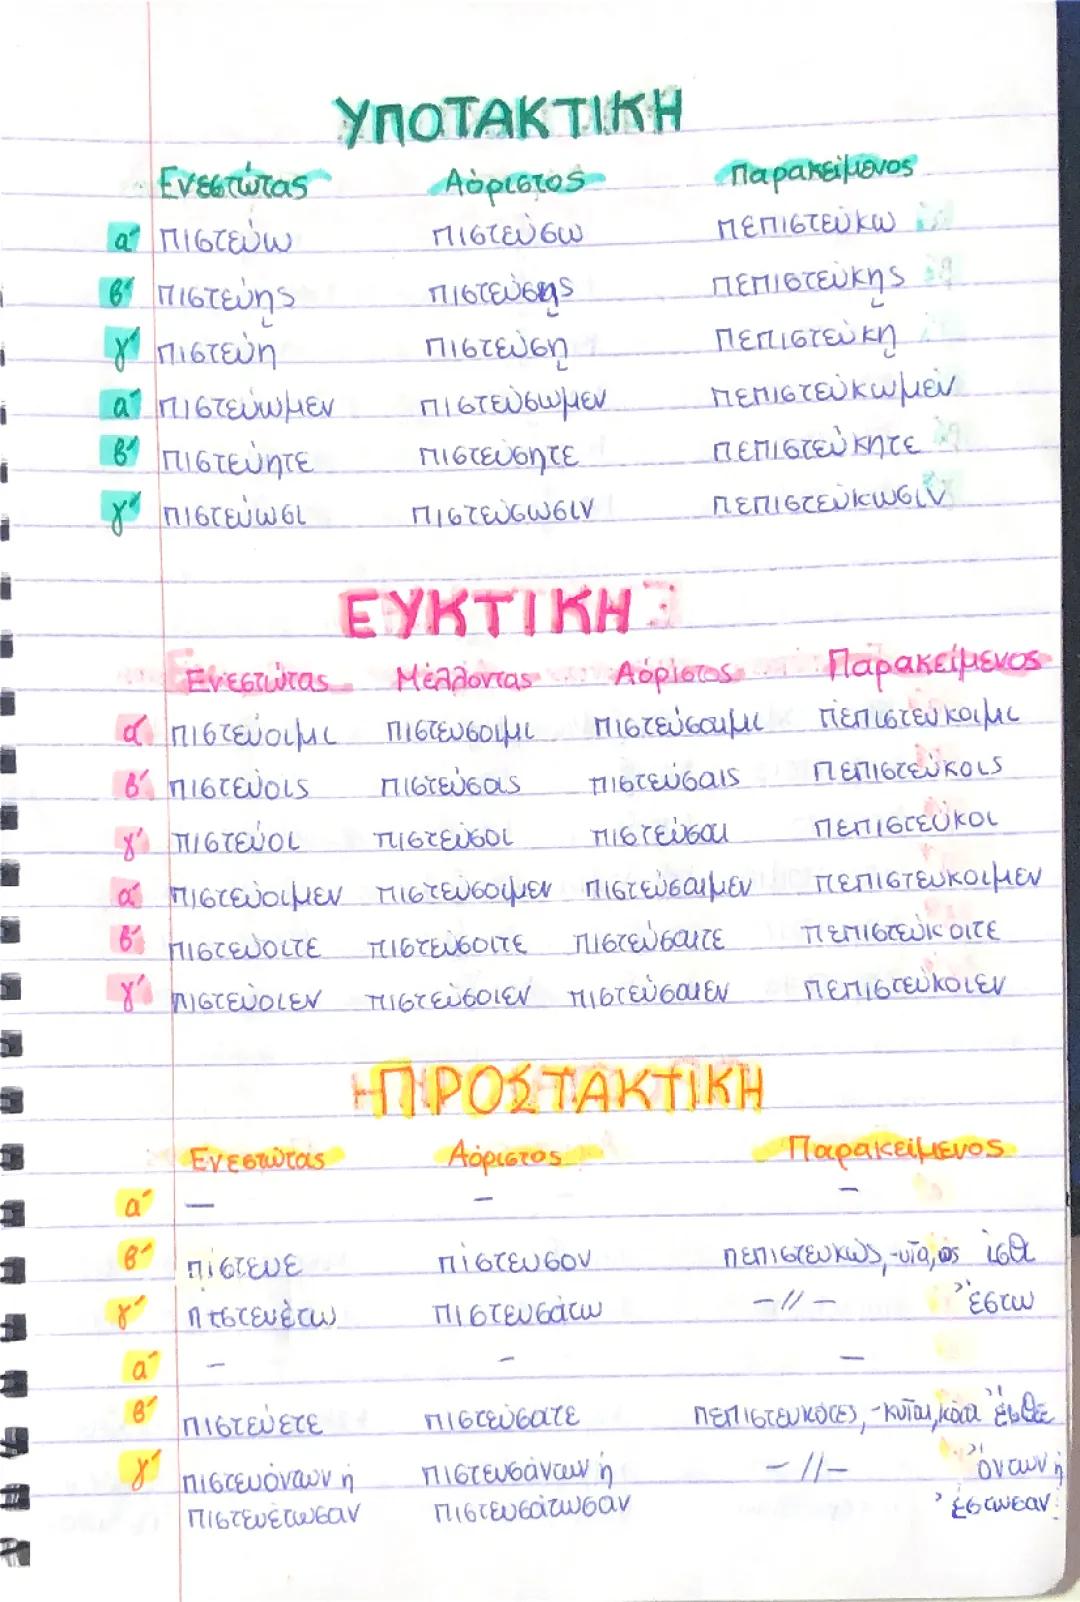 ΥΠΟΤΑΚΤΙΚΗ
Ενεστώτας Αόριστος Παρακείμενος
α΄ πιστεύω πιστεύσω πεπιστεύκω
β΄ πιστεύῃς πιστεύσῃς πεπιστεύκῃς
γ΄ πιστεύῃ πιστεύσῃ πεπιστεύκῃ
α΄ πιστεύωμεν πιστεύσωμεν πεπιστεύκωμεν
β΄ πιστεύητε πιστεύσητε πεπιστεύκητε
γ΄ πιστεύωσι πιστεύσωσιν πεπιστεύκωσιν
ΕΥΚΤΙΚΗ
Ενεστώτας Μέλλοντας Αόριστος Παρακείμενος
α΄ πιστεύοιμι πιστεύσοιμι πιστεύσαιμι πεπιστεύκοιμι
β΄ πιστεύοις πιστεύσοις πιστεύσαις πεπιστεύκοις
γ΄ πιστεύοι πιστεύσοι πιστεύσαι πεπιστεύκοι
α΄ πιστεύοιμεν πιστεύσοιμεν πιστεύσαιμεν πεπιστεύκοιμεν
β΄ πιστεύοιτε πιστεύσοιτε πιστεύσαιτε πεπιστεύκοιτε
γ΄ πιστεύοιεν πιστεύσοιεν πιστεύσαιεν πεπιστεύκοιεν
ΠΡΟΣΤΑΚΤΙΚΗ
Ενεστώτας Αόριστος Παρακείμενος
α΄ — — —
β΄ πίστευε πίστευσον πεπιστευκώς, -υῖα, ός ἴσθι
γ΄ πιστευέτω πιστευσάτω -//- ἔστω
α΄ — — —
β΄ πιστεύετε πιστεύσατε πεπιστευκότες, -κυῖαι, κότα ἔσθε
γ΄ πιστευόντων ή πιστευσάντων ή -//- ὄντων ή
πιστευέτωσαν πιστευσάτωσαν ἔστωσαν